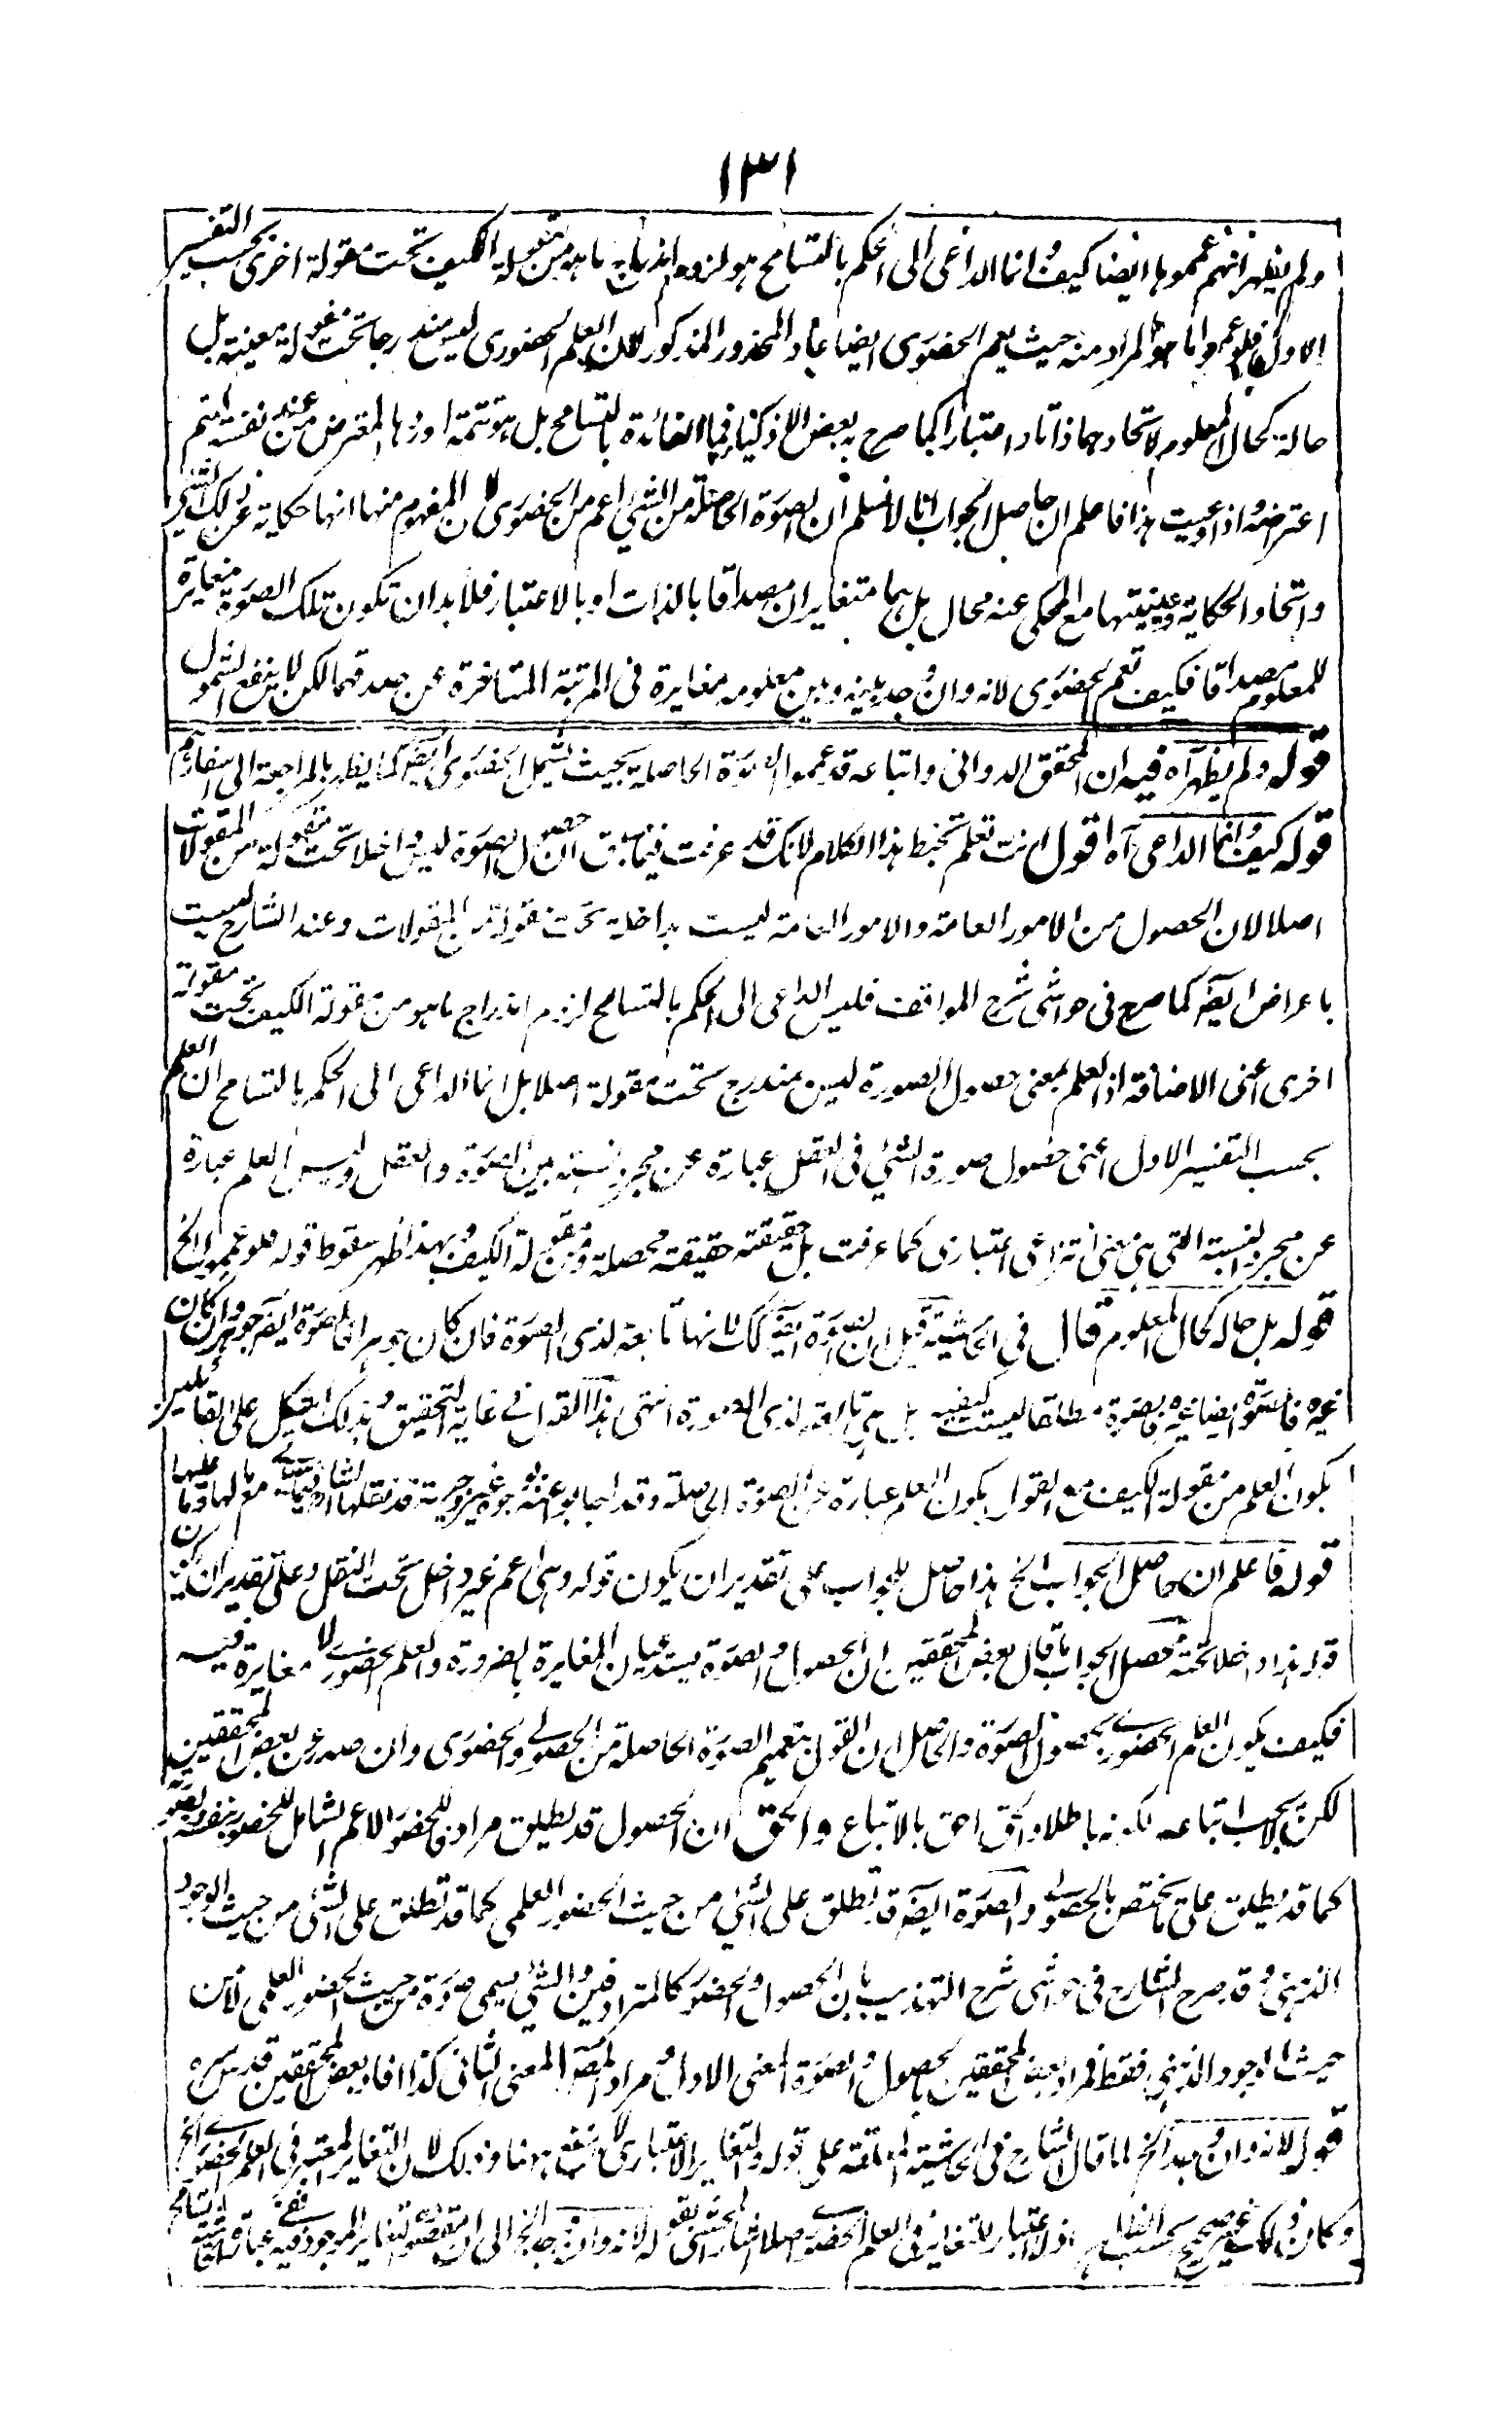 ١٣١
ولم يظهر انهم عمموها ايضا كيف وانما الداعى الى الحكم بالتسامح هو لزوم اندراج ما هو من مقولة الكيف تحت مقولة اخرى بحسب التفسير
الاول فلو عمموا ما هو المراد منه حيث يعم الحضورى ايضا عاد المحذور المذكور لان العلم الحضورى ليس مندرجا تحت مقولة معينة بل
حاله كحال المعلوم لاتحادهما ذاتا واعتبارا كما صرح به بعض الاذكياء فما الفائدة بالتسامح بل هو تتمة اوردها المعترض من عند نفسه ليتم
اعتراضه اذا وعيت هذا فاعلم ان حاصل الجواب انا لا نسلم ان الصورة الحاصلة من الشئ اعم من الحضورى لان المفهوم منها انها حكاية عن ذلك الشئ
واتحاد الحكاية وعينيتها مع المحكى عنه محال بل هما متغايران مصداقا بالذات او بالاعتبار فلا بد ان تكون تلك الصورة مغايرة
للمعلوم مصداقا فكيف تعم الحضورى لانه وان وجد بينه وبين معلومه مغايرة فى المرتبة المتاخرة عن صدقهما لكن لا ينفع الشمول
قوله ولم يظهر آه فيه ان المحقق الدوانى واتباعه قد عمموا الصورة الحاصلة بحيث تشمل الحضورى ايضا كما يظهر بالمراجعة الى اسفارهم
قوله كيف وانما الداعى آه اقول انت تعلم تخبط هذا الكلام لانك قد عرفت فيما سبق ان حصول الصورة ليس داخلا تحت مقولة من المقولات
اصلا لان الحصول من الامور العامة والامور العامة ليست بداخلة تحت مقولة من المقولات وعند الشارح ليست
باعراض ايضا كما صرح فى حواشى شرح المواقف فليس الداعى الى الحكم بالتسامح لزوم اندراج ما هو من مقولة الكيف تحت مقولة
اخرى اعنى الاضافة اذ العلم بمعنى حصول الصورة ليس بمندرج تحت مقولة اصلا بل انما الداعى الى الحكم بالتسامح ان العلم
بحسب التفسير الاول اعنى حصول صورة الشئ فى العقل عبارة عن مجرد نسبة بين الصورة والعقل وليس العلم عبارة
عن مجرد النسبة التى هى معنى انتزاعى اعتبارى كما عرفت بل حقيقته حقيقة محصلة من مقولة الكيف وبهذا ظهر سقوط قوله فلو عمموا الخ
قوله بل حاله كحال المعلوم قال فى الحاشية قيل ان الصورة ايضا كك لانها تابعة لذى الصورة فان كان جوهرا فالصورة ايضا جوهر وان كان
غيره فالصورة ايضا غيره فالصورة مطلقا ليست كيفية بل هى تابعة لذى الصورة انتهى هذا القول فى غاية التحقيق وبذلك اشكل على القائلين
بكون العلم من مقولة الكيف مع القول بكون العلم عبارة عن الصورة الحاصلة وقد اجابوا عنه بوجوه غير وجيهة قد نقلها الشارح فيما سيأتى مع مالها وما عليها
قوله فاعلم ان حاصل الجواب الخ هذا حاصل للجواب على تقدير ان يكون قوله وهى اعم غير داخل تحت النقل وعلى تقدير ان يكون
قوله هذا داخلا تحته محصل الجواب ما قال بعض المحققين ان الحصول والصورة يستدعيان المغايرة بالضرورة والعلم الحضورى لا مغايرة فيه
فكيف يكون العلم الحضورى بحصول الصورة والحاصل ان القول بتعميم الصورة الحاصلة من الحصولى والحضورى وان صدر عن بعض المحققين
لكن لا يجب اتباعه لكونه باطلا والحق احق بالاتباع والحق ان الحصول قد يطلق مرادفا للحضور الاعم الشامل للحضور بنفسه وبصورته
كما قد يطلق على ما يختص بالحصولى والصورة ايضا قد تطلق على الشئ من حيث الحضور العلمى كما قد تطلق على الشئ من حيث الوجود
الذهنى وقد صرح الشارح فى حواشى شرح التهذيب بان الحصول والحضور كالمترادفين والشئ يسمى صورة من حيث الحضور العلمى لا من
حيث الوجود الذهنى فقط فمراد بعض المحققين بالحصول والصورة المعنى الاول ومراد المصنف المعنى الثانى كذا افاد بعض المحققين قدس سره
قوله لانه وان وجد الخ لما قال الشارح فى الحاشية المعلقة على قوله والتغاير الاعتبارى لا ينفع ههنا وذلك لان التغاير المعتبر فى العلم الحضورى الخ
وكان ذلك غير صحيح بحسب الظاهر اذ لا اعتبار للتغاير فى العلم الحضورى اصلا اشار المحشى بقوله لانه وان وجد الخ الى ان مقصوده التغاير الموجود فيه ففى عبارة الحاشية تسامح